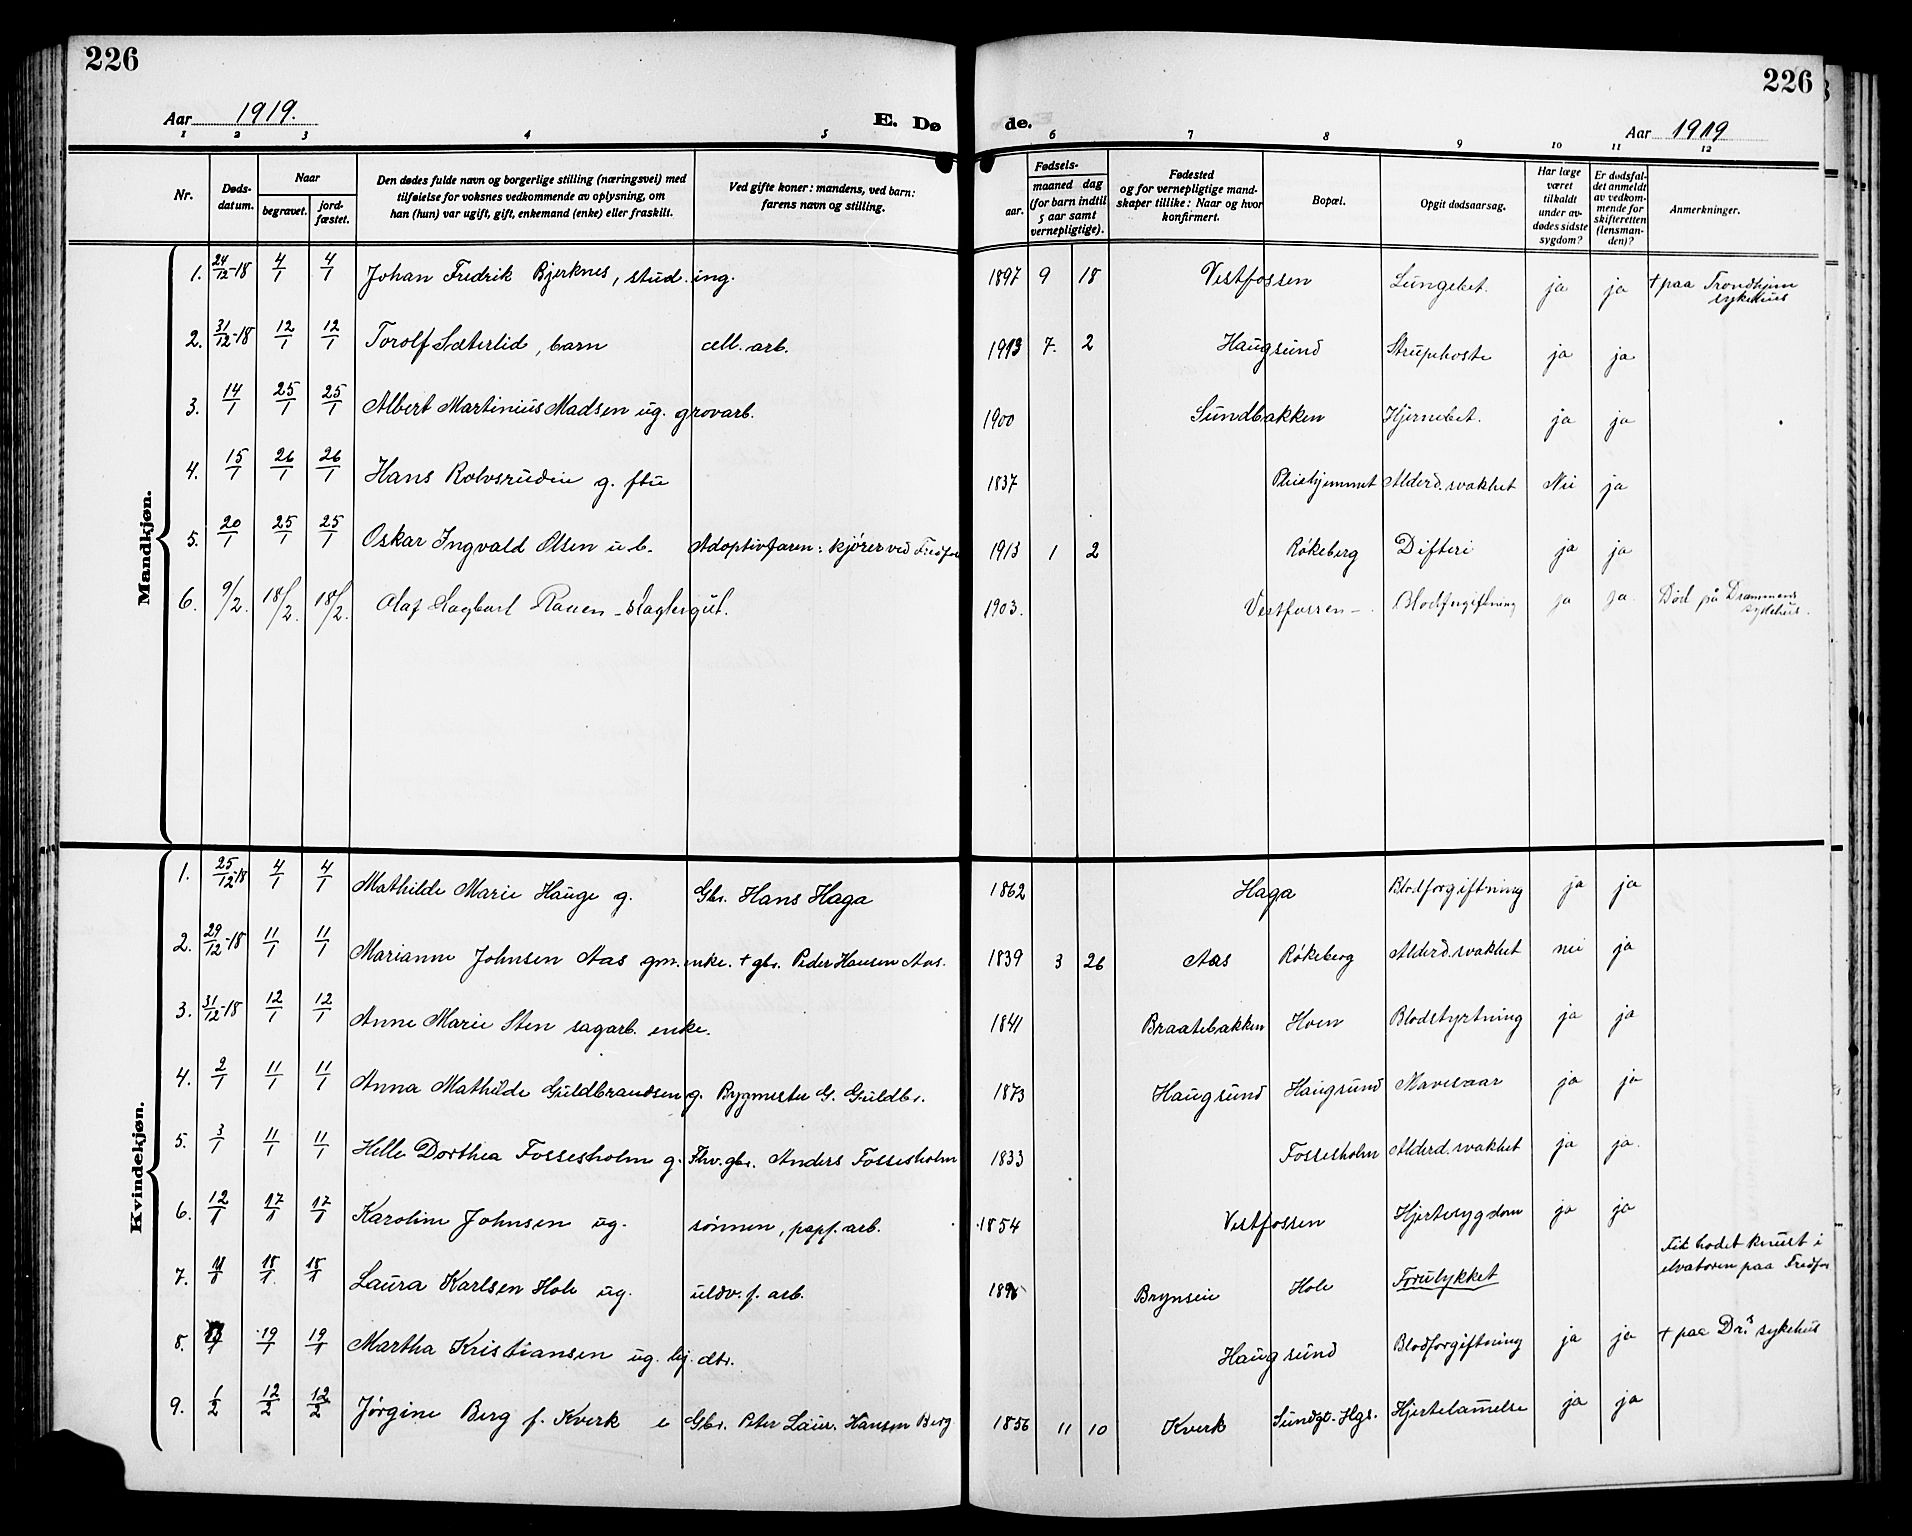 226
226
Aar 1919.
E. Dø de.
Aar 1919
1 2 3 4 5 6 7 8 9 10 11 12
Nr.
Døds-datum.
Naar
begravet.
jord-fæstet.
Den dødes fulde navn og borgerlige stilling (næringsvei) med
tilføielse for voksnes vedkommende av oplysning, om
han (hun) var ugift, gift, enkemand (enke) eller fraskilt.
Ved gifte koner: mandens, ved barn:
farens navn og stilling.
Fødsels-
aar.
maaned dag
(for barn indtil
5 aar samt
vernepligtige).
Fødested
og for vernepligtige mand-
skaper tillike: Naar og hvor
konfirmert.
Bopæl.
Opgit dødsaarsag.
Har læge
været
tilkaldt
under av-
dødes sidste
sygdom?
Er dødsfal-
det anmeldt
av vedkom-
mende for
skifteretten
(lensman-
den)?
Anmerkninger.
Mandkjøn.
1. 24/12-18 4/1 4/1 Johan Fredrik Bjerknes, stud. ing. 1897 9 18 Vestfossen Lungebet. ja ja + paa Trondhjem sykehus
2. 31/12-18 12/1 12/1 Torolf Sæterlid, barn cell. arb. 1913 7. 2 Haugsund Strupehoste ja ja
3. 14/1 25/1 25/1 Albert Martinius Madsen ug. grovarb. 1900 Sundbakken Hjernebet. ja ja
4. 15/1 26/1 26/1 Hans Rolvsrudeie g. 1837 Pleiehjemmet Alderd.svakhet Nei ja
5. 20/1 25/1 25/1 Oskar Ingvald Olsen u.b. Adoptivfaren: kjører ved Fredfos 1913 1 2 Røkeberg Difteri ja ja
6. 9/2. 18/2. 18/2. Olaf Hagbart Raaen - slagtergut. 1903. Vestfossen - Blodforgiftning ja ja. Død på Drammens sykehus.
Kvindekjøn.
1. 25/12-18 4/1 4/1 Mathilde Marie Hauge g. Gbr. Hans Haga 1862 Haga Blodforgiftning ja ja
2. 29/12-18 11/1 11/1 Marianne Johnsen Aas gm. enke. + gbr. Peder Hansen Aas. 1839 3 26 Aas Røkeberg Alderd.svakhet nei ja
3. 31/12-18 12/1 12/1 Anne Marie Sten sagarb. enke. 1841 Braatebakken Hoen Blodstyrtning ja ja
4. 2/1 11/1 11/1 Anna Mathilde Guldbrandsen g. Bygmester G. Guldbr. 1873 Haugsund Haugsund Mavesaar ja ja
5. 3/1 11/1 11/1 Helle Dorthea Fossesholm g. Fhv. gbr. Anders Fossesholm 1833 Fossesholm Alderd.svakhet ja ja.
6. 12/1 17/1 17/1 Karoline Johnsen ug. sønnen, papf. arb. 1854 Vestfossen Hjertesygdom ja ja
7. 11/1 18/1. 18/1 Laura Karlsen Hole ug. uldv. f. arb. 1896 Brynseie Hole Forulykket Fik hodet knust i elvatoren paa Fredfos
8. 19/1 19/1 Martha Kristiansen ug. tj. dtr. Haugsund Blodforgiftning ja ja + paa Dr.s sykehus
9. 1/2 12/2 12/2 Jørgine Berg f. Kverk e Gbr. Peter Laur. Hansen Berg 1856 11 10 Kverk Sundgt. Hgs. Hjertelamelse ja ja